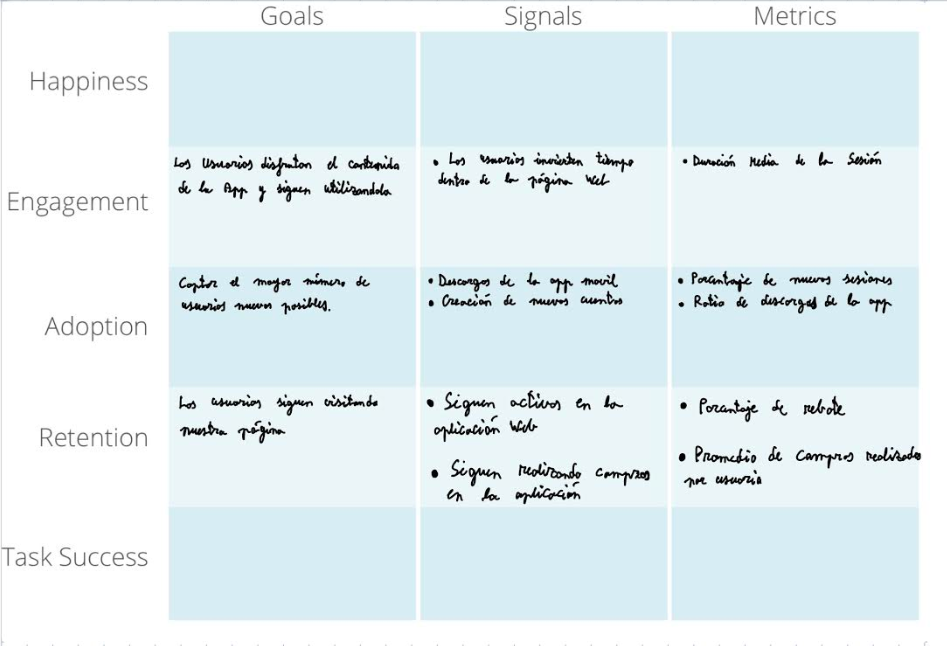 Goals Signals Metrics
Happiness
Engagement
Los usuarios disfrutan el contenido
de la App y siguen utilizandola
• Los usuarios invierten tiempo
dentro de la página Web
• Duración Media de la Sesión
Adoption
Captar el mayor número de
usuarios nuevos posibles.
• Descargas de la app movil
• Creación de nuevas cuentas
• Porcentaje de nuevas sesiones
• Ratio de descargas de la app
Retention
Los usuarios siguen visitando
nuestra página
• Siguen activos en la
aplicación Web
• Siguen realizando compras
en la aplicación
• Porcentaje de rebote
• Promedio de compras realizadas
por usuario
Task Success